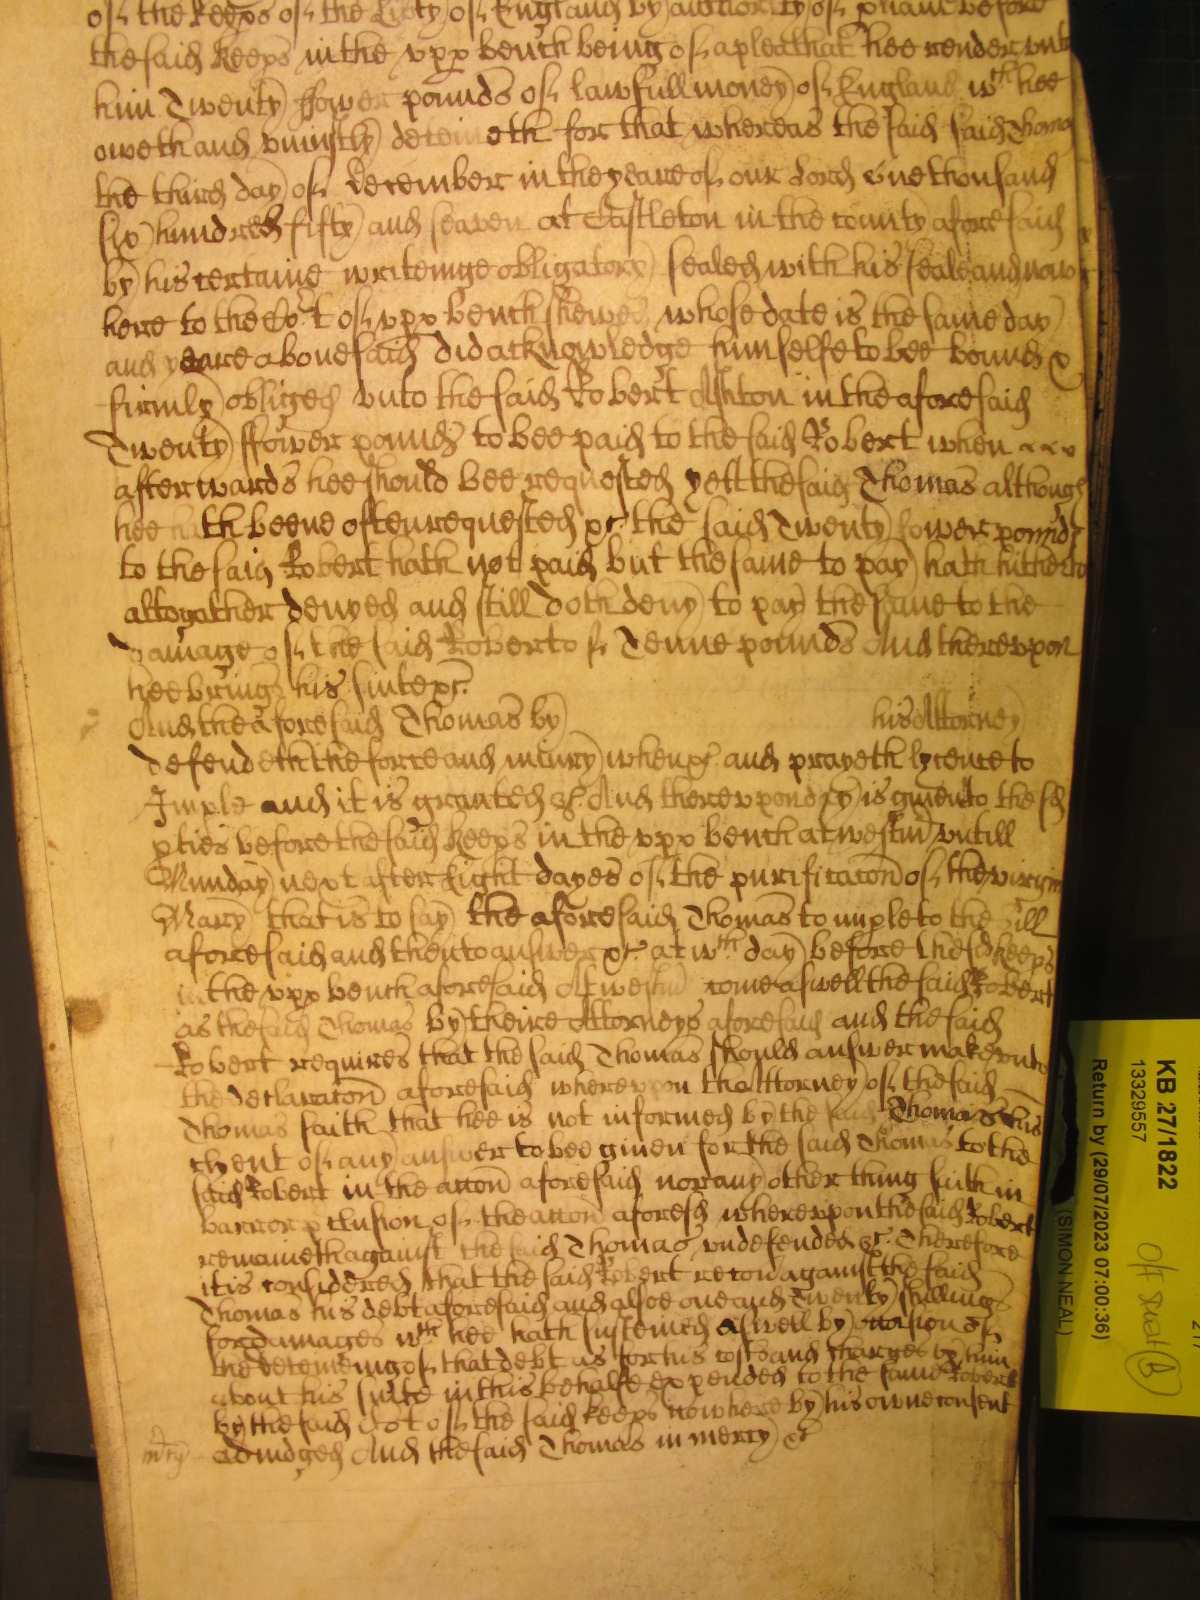 of the Keeps of the Lib'ty of England by authority of p'liam' before
the said Keeps in the upp bench being of a plea that hee render unto
him Twenty ffower pounds of lawfull money of England wch hee
oweth and uniustly deteineth for that whereas the said said Thomas
the third day of December in the yeare of our Lord One thousand
six hundred fifty and seaven at Castleton in the County aforesaid
by his certaine writeinge obligatory sealed with his seale and now
here to the Co't of upp bench shewed whose date is the same day
and yeare abovesaid did acknowledge himselfe to bee bound &
firmly obliged unto the said Robert Ashton in the aforesaid
Twenty ffower pounds to bee paid to the said Robert when
afterwards hee should bee requested yett the said Thomas although
hee hath beene often requested &c the said Twenty fower pounds
to the said Robert hath not paid but the same to pay hath hitherto
altogather denyed and still doth deny to pay the same to the
damage of the said Robert of Tenne pounds And thereupon
hee brings his suite &c
And the aforesaid Thomas by his Attorney
defendeth the force and iniury when &c and prayeth lycence to
Imple and it is granted &c And thereupon day is given to the sd
pties before the said Keeps in the upp bench at westm' untill
Munday next after Eight dayes of the purificacon of the virgin
Mary that is to say the aforesaid Thomas to imple to the bill
aforesaid and then to answer &c at wch day before the sd Keeps
in the upp bench aforesaid At westm' come aswell the said Robert
as the said Thomas by theire Attorneys aforesaid and the said
Robert requires that the said Thomas should answer make unto
the declaracon aforesaid whereupon the Attorney of the said
Thomas saith that hee is not informed by the said Thomas his
clyent of any answer to bee given for the said Thomas to the
said Robert in the accon aforesaid nor any other thing saith in
barr or p'clusion of the accon aforesd whereupon the said Robert
remaineth against the said Thomas undefended &c Therefore
it is considered that the said Robert recov against the said
Thomas his debt aforesaid and alsoe one and Twenty shillings
for damages wch hee hath susteined aswell by occasion of
the deteineing of that debt as for his costs and charges by him
about his suite in this behalfe expended to the same Robert
by the said Co't of the said Keeps now here by his owne consent
adiudged And the said Thomas in mercy &c
m'cy
KB 27/1822
13329557
Return by (29/07/2023 07:00:36)
(SIMON NEAL)